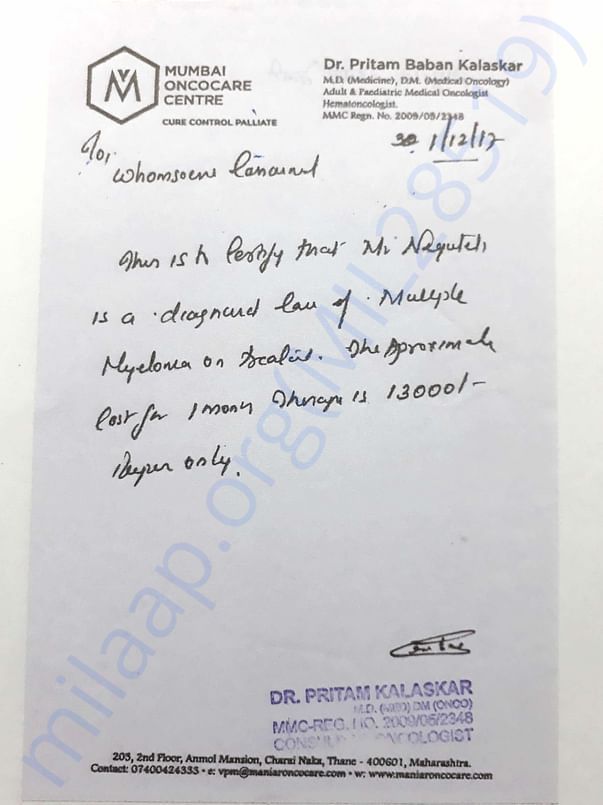 MUMBAI
ONCOCARE
CENTRE
CURE CONTROL PALLIATE
Dr. Pritam Baban Kalaskar
M.D. (Medicine), D.M. (Medical Oncology)
Adult & Paediatric Medical Oncologist
Hematoncologist.
MMC Regn. No. 2009/05/2348
1/12/17
To,
Whomsoever Concerned
This is to Certify that Mr
is a diagnosed Case of Multiple
Myeloma on . The Aproximate
Cost for 1 month Therapy is 13000/-
Rupees only.
DR. PRITAM KALASKAR
M.D. (MED) DM (ONCO)
MMC-REG. NO. 2009/05/2348
CONSULTANT ONCOLOGIST
203, 2nd Floor, Anmol Mansion, Charai Naka, Thane - 400601, Maharashtra.
Contact: 07400424333 • e: vpm@maniaroncocare.com • w: www.maniaroncocare.com
milaap.org(MIL28519)